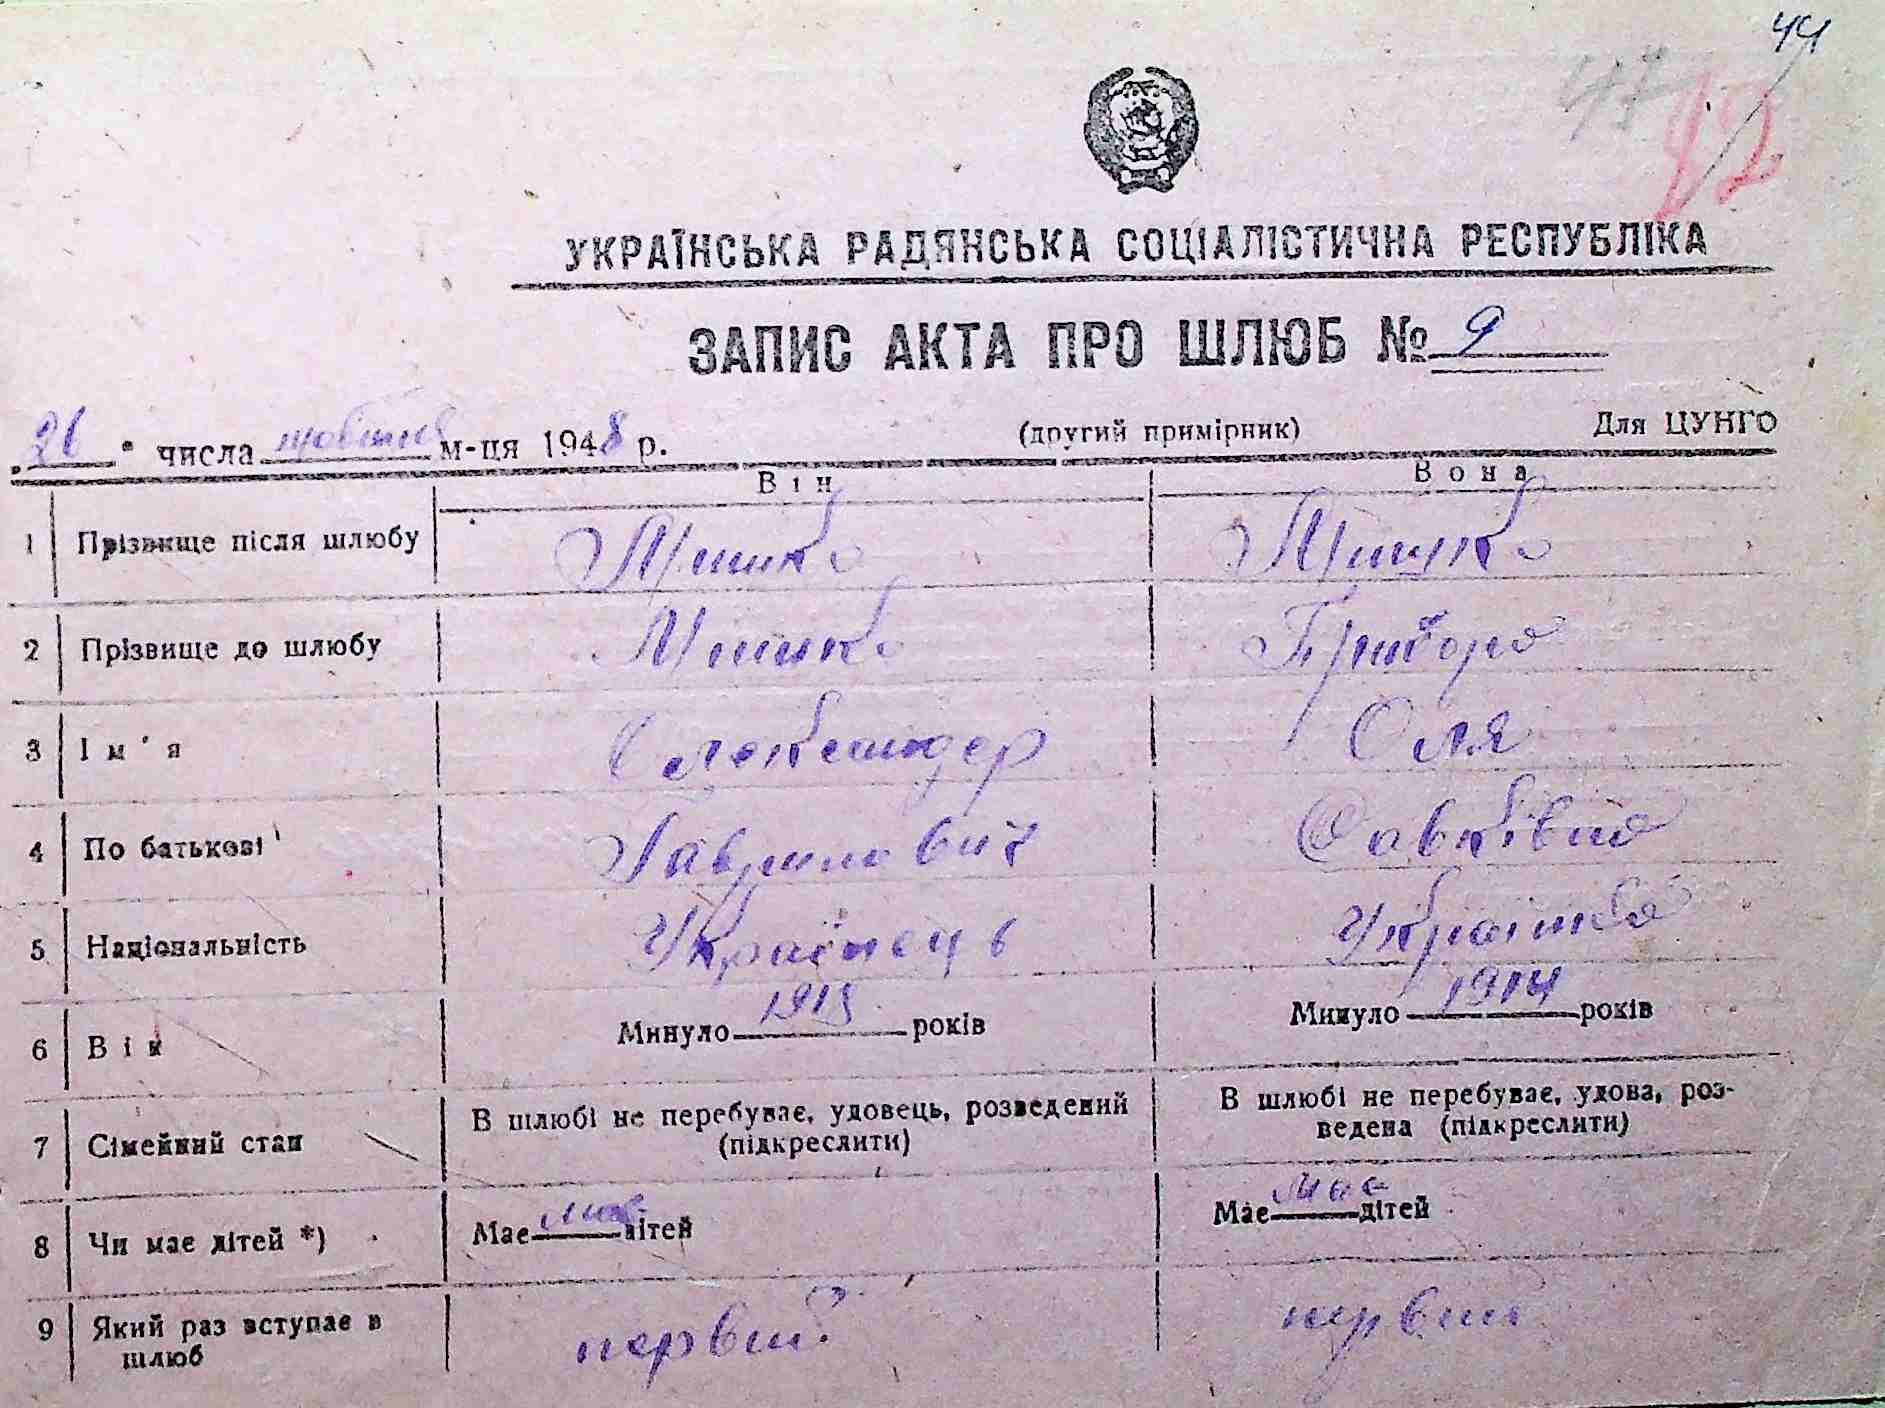 44
47
42
УКРАЇНСЬКА РАДЯНСЬКА СОЦІАЛІСТИЧНА РЕСПУБЛІКА
ЗАПИС АКТА ПРО ШЛЮБ № 9
„26 " числа жовтня м-ця 1948 р. (другий примірник) Для ЦУНГО
Він Вона
1 Прізвище після шлюбу
2 Прізвище до шлюбу
3 Ім'я Олександер Оля
4 По батькові Гаврилович Савківна
5 Національність Українець Українка
6 Вік Минуло 1918 років Минуло 1914 років
7 Сімейний стан В шлюбі не перебуває, удовець, розведений (підкреслити) В шлюбі не перебуває, удова, роз-
ведена (підкреслити)
8 Чи має дітей *) Має має дітей Має має дітей
9 Який раз вступає в
шлюб первий первий